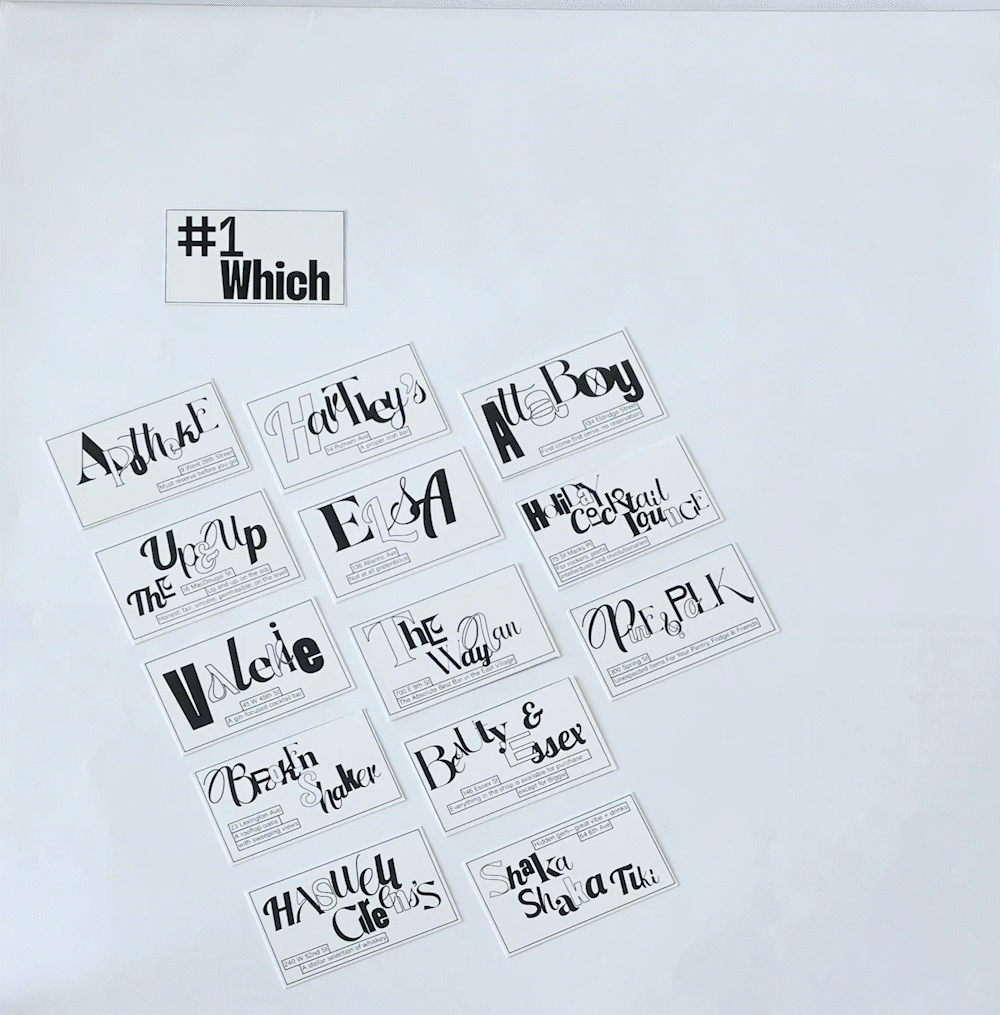 #1
Which
Apotheke
9 West 26th Street
Must reserve before you go!
Hartley's
14 Putnam Ave
A proper Irish bar
AttaBoy
134 Eldridge Street
First come first serve, no reservations
The Up&Up
116 MacDougal St
Up and up, on the sclk
Honest, fair, sincere, permissible, on the level
ELSA
136 Atlantic Ave
Not at all pretentious
Holiday
Cocktail
Lounge
75 St Marks Pl
For rockers, poets
intellectuals and revolutionaries
Valerie
45 W 45th St
A gin-focused cocktail bar
The
Wayland
700 E 9th St
The Absolute Best Bar in the East Village
Pine&Polk
300 Spring St
Unexpected Items For Your Pantry, Fridge & Friends
Broken
Shaker
23 Lexington Ave
A rooftop oasis
with sweeping views
Beauty &
Essex
146 Essex St
Everything in the shop is available for purchase
except for Biggie
Haswell
Greens's
240 W 52nd St
A stellar selection of whiskey
Hidden gem— great vibe + drinks
64 6th Ave
Shaka
Shaka Tiki